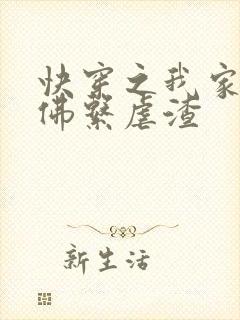 快穿之我家
佛繫虐渣
新生活